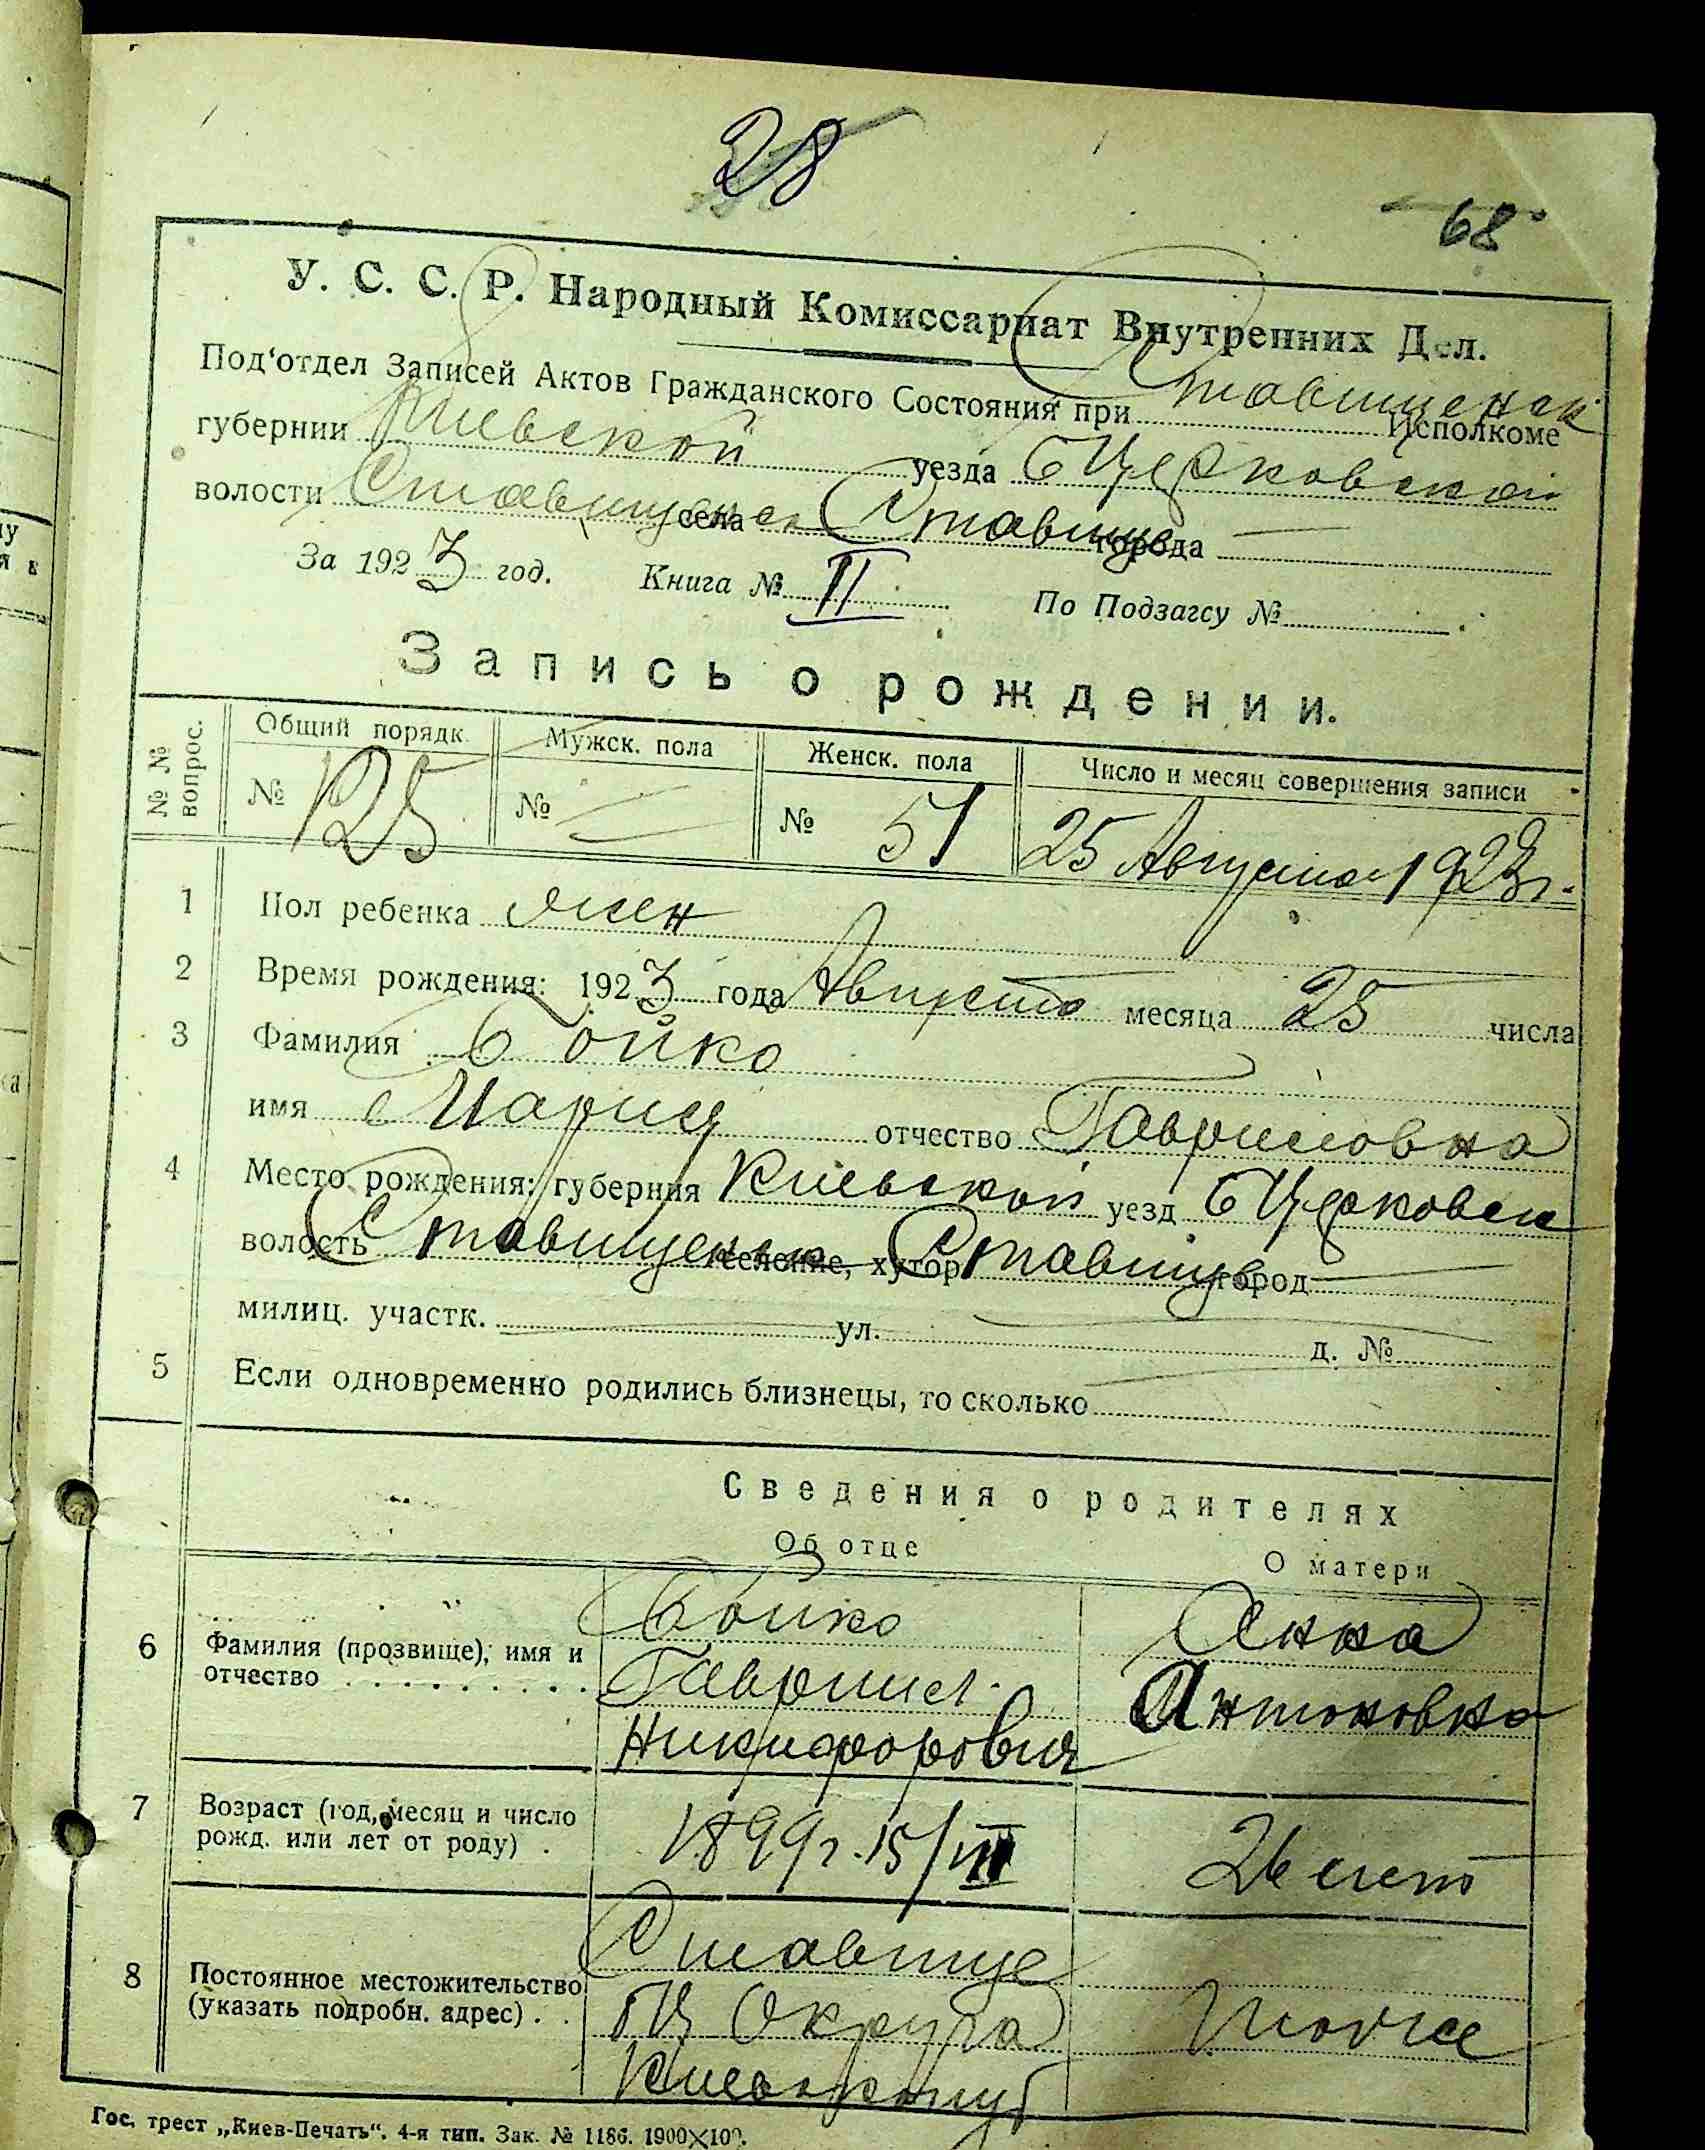 28
68
У. С. С. Р. Народный Комиссариат Внутренних Дел.
Под‘отдел Записей Актов Гражданского Состояния при Ставищенск Исполкоме
губернии Киевской уезда БЦерковской
волости Ставищенск села Ставище города —
За 1923 год. Книга № II По Подзагсу №
Запись о рождении.
№ № вопрос. Общий порядк. Мужск. пола Женск. пола Число и месяц совершения записи
№ 125 № — № 51 25 Августа 1923 г.
1 Пол ребенка жен
2 Время рождения: 1923 года Августа месяца 25 числа
3 Фамилия Бойко
имя Мария отчество Гавриловна
4 Место рождения: губерния Киевской уезд БЦерковск
волость Ставищенск селение, хутор Ставище город —
милиц. участк. — ул. — д. №
5 Если одновременно родились близнецы, то сколько —
Сведения о родителях
Об отце О матери
6 Фамилия (прозвище), имя и отчество
Бойко
Гавриил
Никифорович
Анна
Антоновна
7 Возраст (год, месяц и число рожд. или лет от роду)
1899 г. 15/III
26 лет
8 Постоянное местожительство (указать подробн. адрес)
Ставище
БЦ Округа
Киевск губ
Тоже
Гос. трест „Киев-Печать“. 4-я тип. Зак. № 1186. 1900×100.